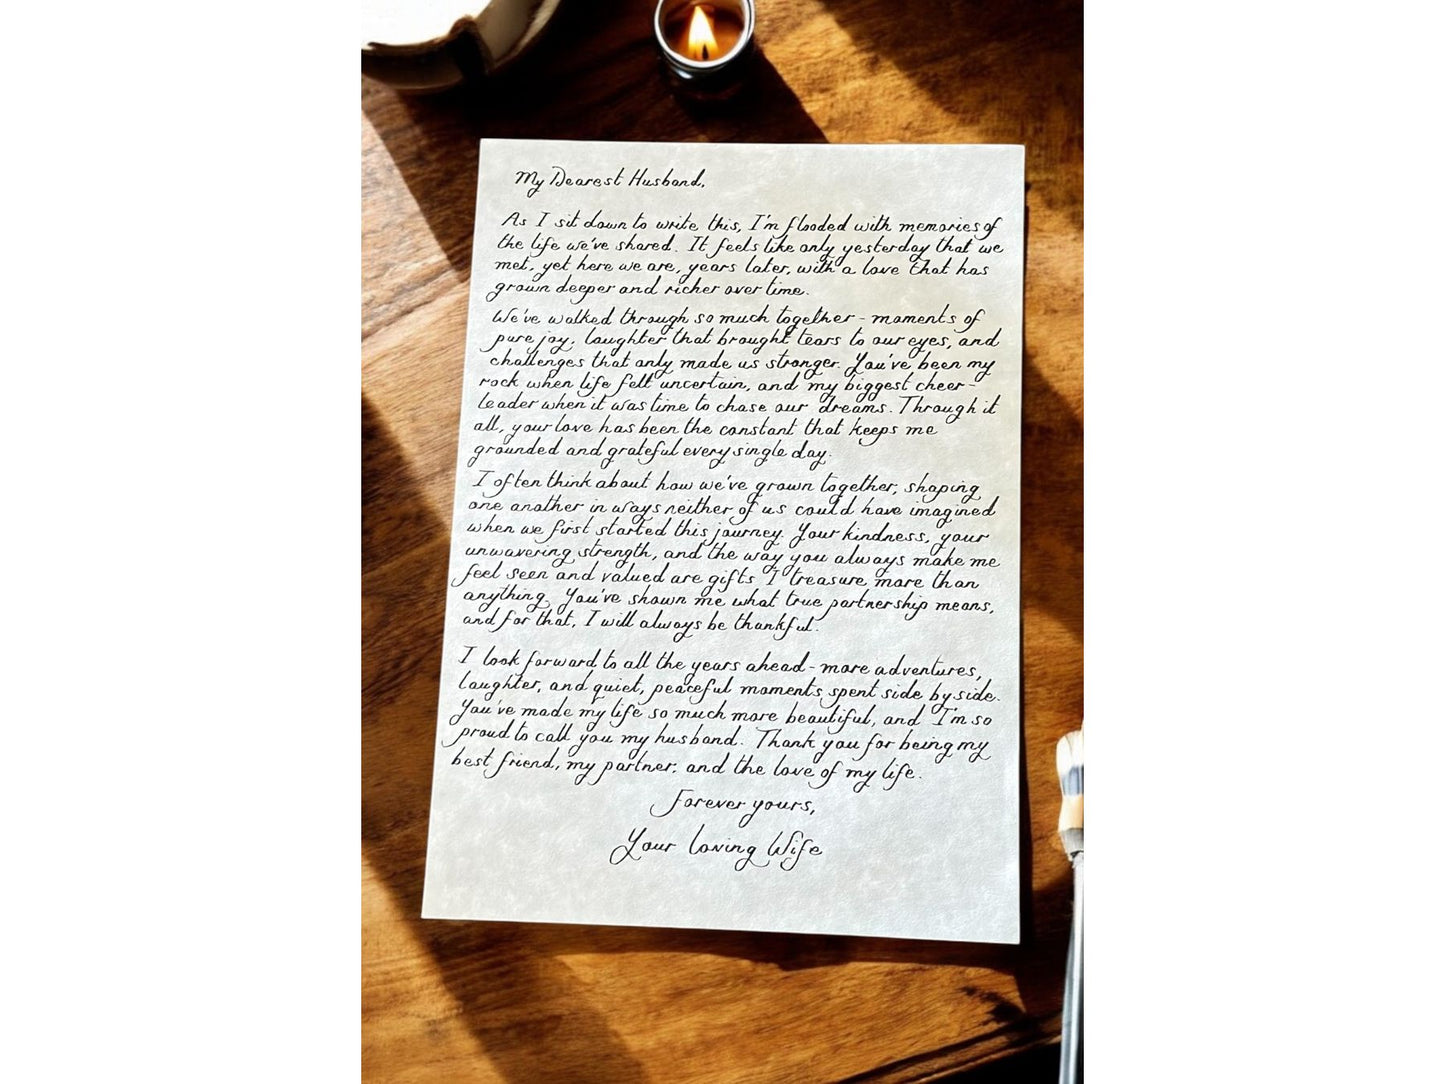 My Dearest Husband,
As I sit down to write this, I'm flooded with memories of
the life we've shared. It feels like only yesterday that we
met, yet here we are, years later, with a love that has
grown deeper and richer over time.
We've walked through so much together - moments of
pure joy, laughter that brought tears to our eyes, and
challenges that only made us stronger. You've been my
rock when life felt uncertain, and my biggest cheer-
leader when it was time to chase our dreams. Through it
all, your love has been the constant that keeps me
grounded and grateful every single day.
I often think about how we've grown together, shaping
one another in ways neither of us could have imagined
when we first started this journey. Your kindness, your
unwavering strength, and the way you always make me
feel seen and valued are gifts I treasure more than
anything. You've shown me what true partnership means,
and for that, I will always be thankful.
I look forward to all the years ahead - more adventures,
laughter, and quiet, peaceful moments spent side by side.
You've made my life so much more beautiful, and I'm so
proud to call you my husband. Thank you for being my
best friend, my partner, and the love of my life.
Forever yours,
Your Loving Wife